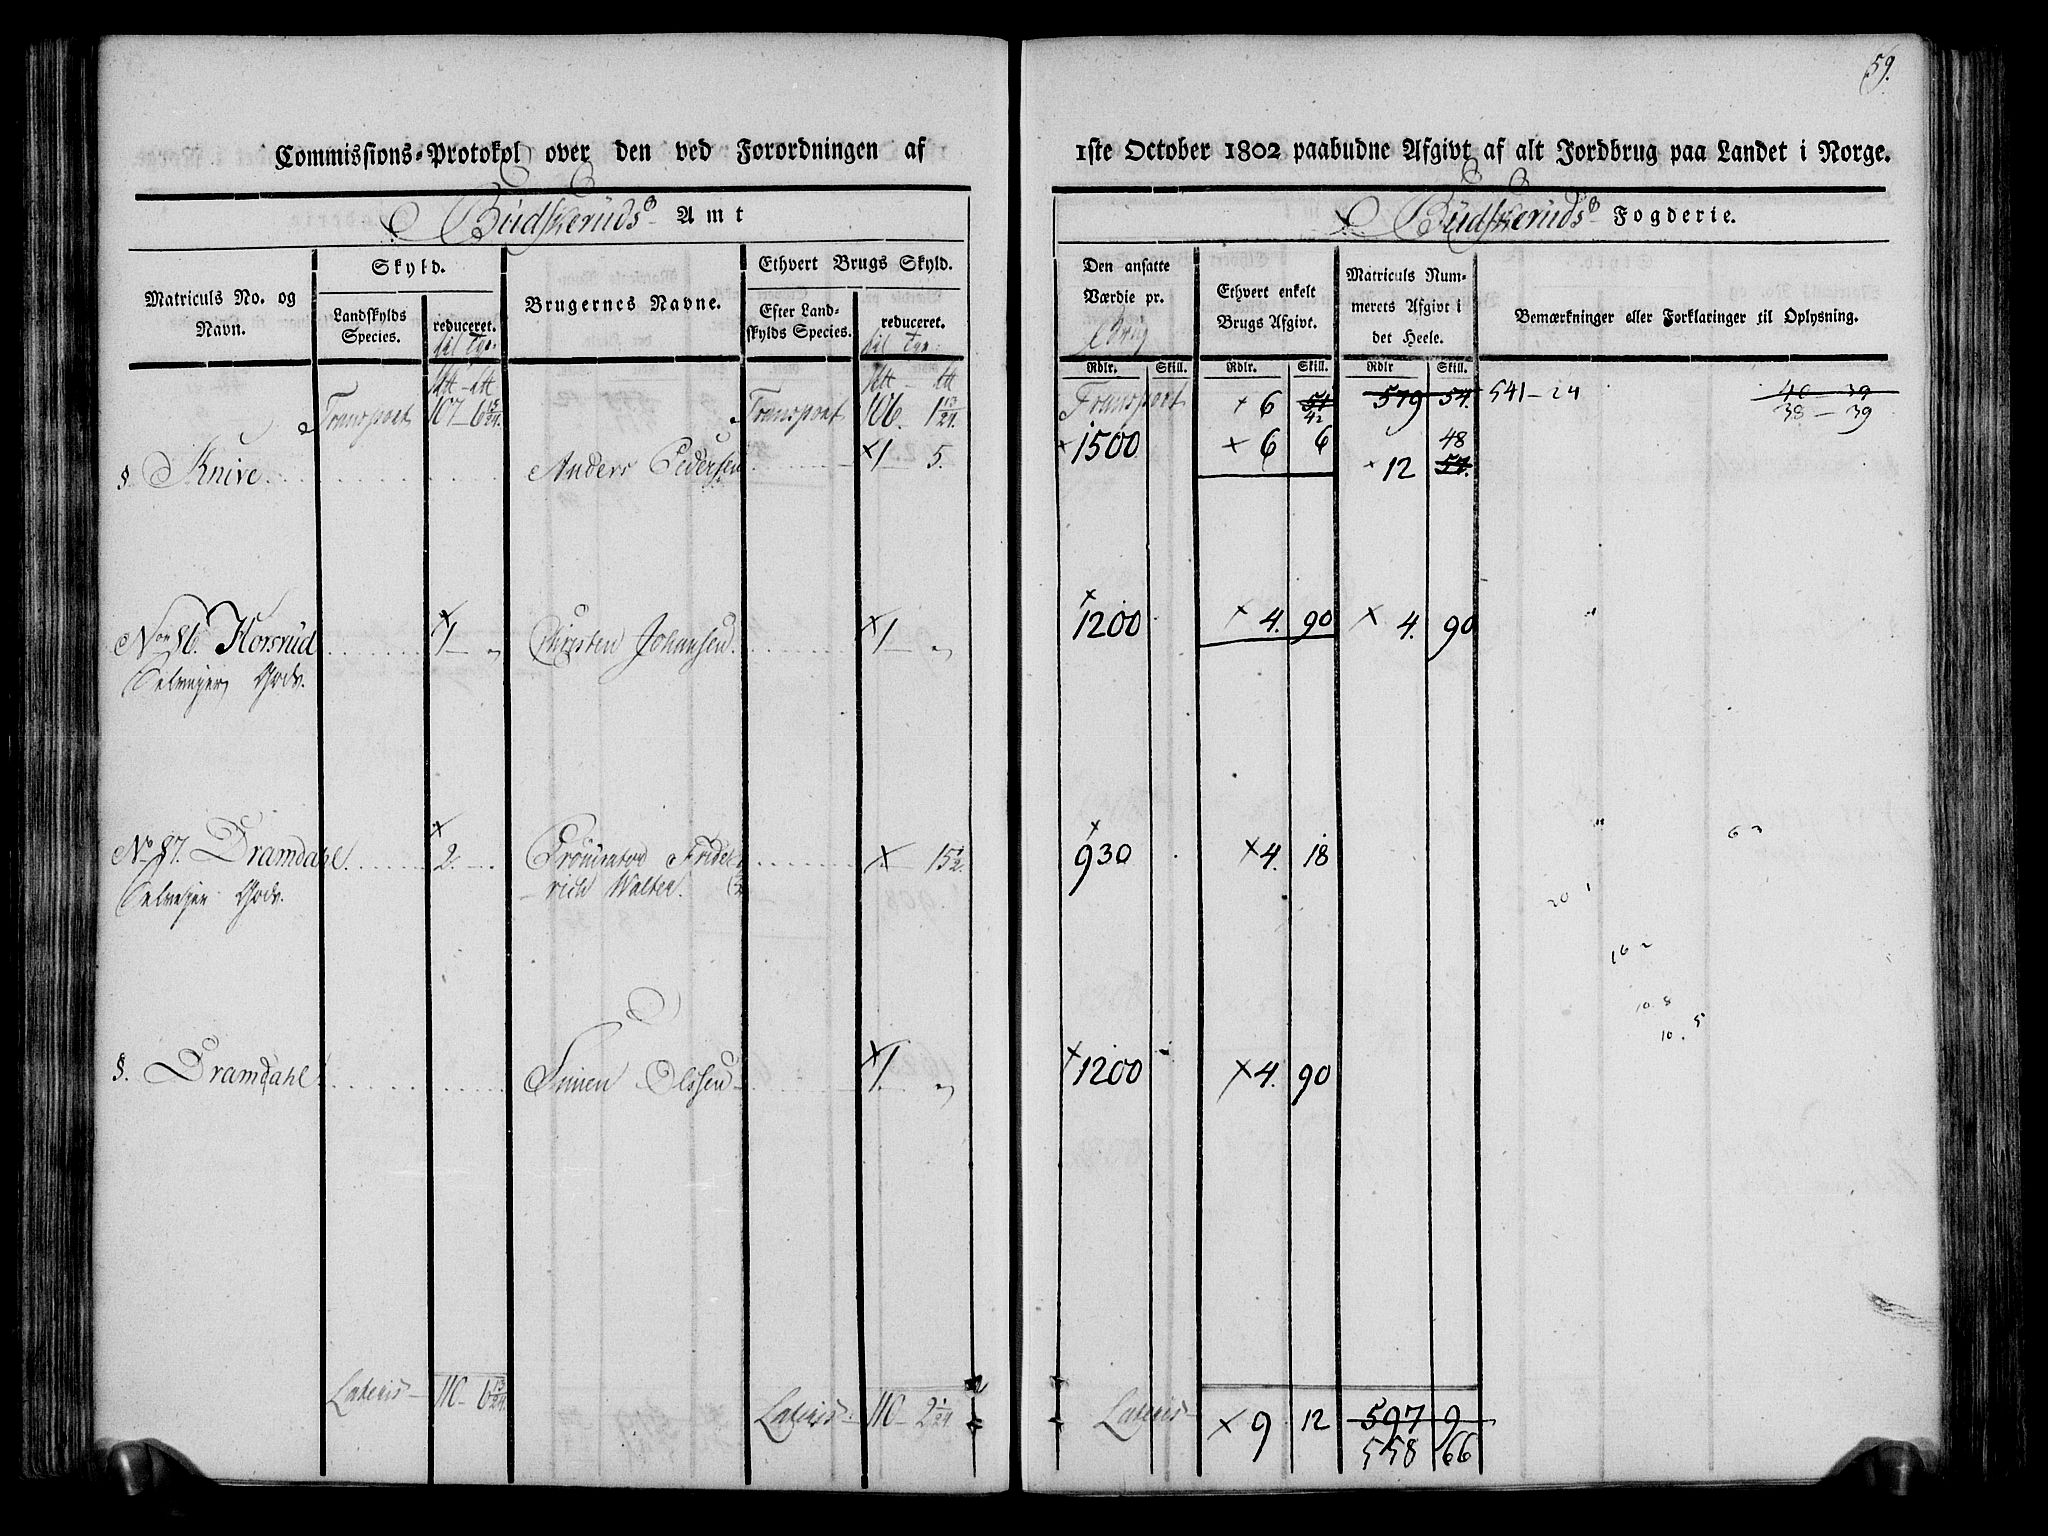 59.
Commissions-Protokol over den ved Forordningen af 1ste October 1802 paabudne Afgivt af alt Jordbrug paa Landet i Norge.
Budskeruds Amt
Budskeruds Fogderie.
Matriculs No. og Navn.
Skyld.
Landskylds Species.
reduceret.
Brugernes Navne.
Ethvert Brugs Skyld.
Efter Landskylds Species.
reduceret.
Den ansatte Værdie pr.
Rdlr. Skill.
Ethvert enkelt Brugs Afgivt.
Rdlr. Skill.
Matriculs Nummerets Afgivt i det Heele.
Rdlr Skill.
Bemærkninger eller Forklaringer til Oplysning.
Transport 107 6 13/24. Transport 106. 1 13/24. Transport × 6 54 42 579 54. 541-24 40-39
38-39
§. Knive. Anders Pedersen ×1 5. ×1500 × 6 6 × 12 48 54.
No 86. Horsrud ×1 - " Christen Johansen. ×1 - " ×1200 × 4. 90 × 4. 90 "
Selveyer Gods.
No 87. Dramdahl. ×2. Friderich Walter. × 15 1/2. ×930 ×4. 18 " 63
Selveyer Gods.
20 1
16 2
10 8
10. 5
§. Dramdahl Simen Olssen ×1. " ×1200 ×4. 90
Lateris 110 - 6 13/24. Lateris 110 - 2 1/24 Lateris × 9 12 597 9
558 66